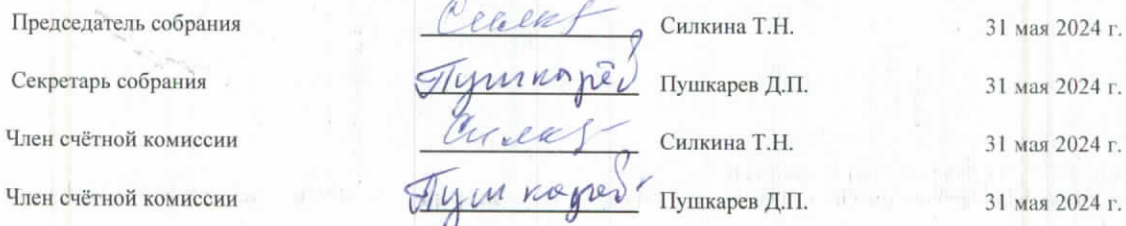 Председатель собрания Силк Силкина Т.Н. 31 мая 2024 г.
Секретарь собрания Пушкарёв Пушкарев Д.П. 31 мая 2024 г.
Член счётной комиссии Силк Силкина Т.Н. 31 мая 2024 г.
Член счётной комиссии Пушкарев Пушкарев Д.П. 31 мая 2024 г.